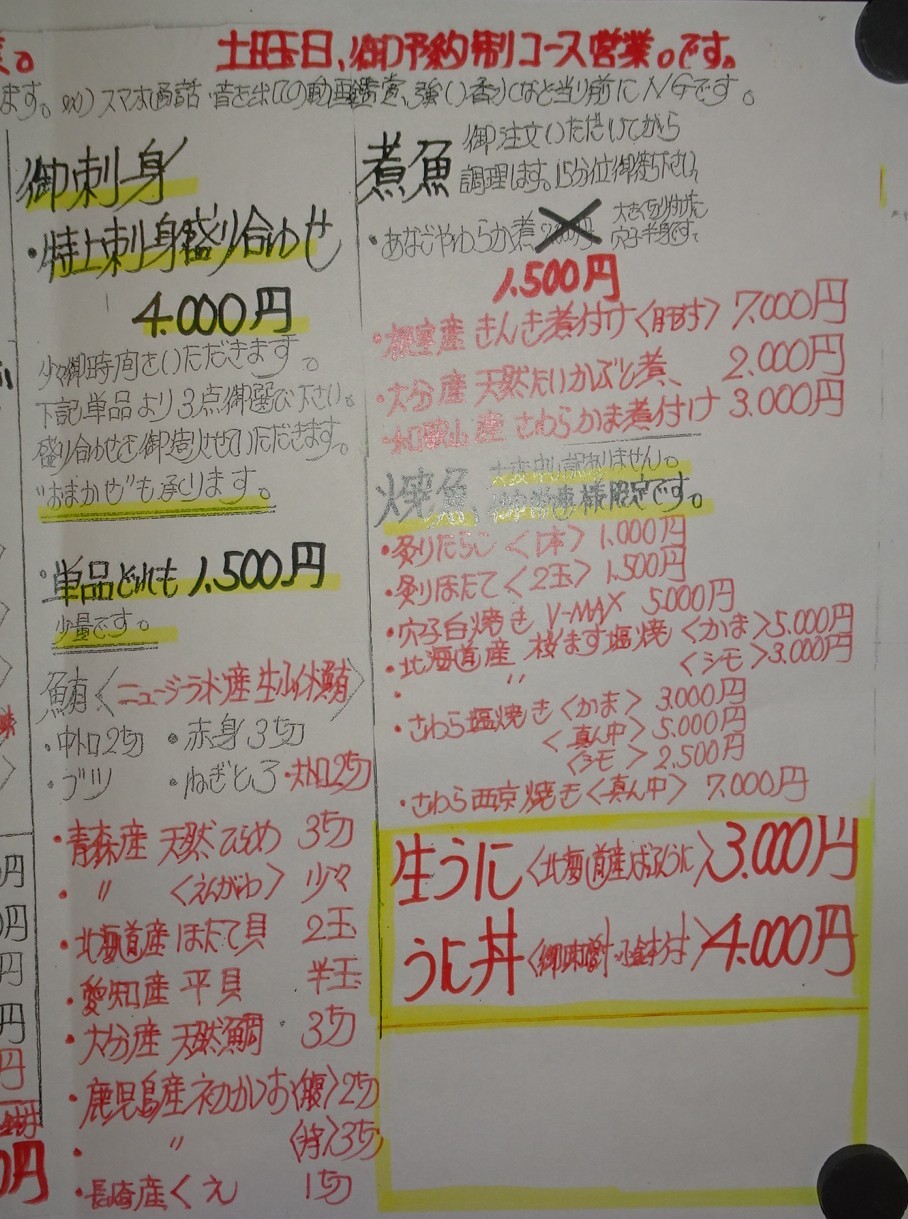 業。
土日玉日、御予約制コース営業。です。
ます。ex)スマホ通話・音を出しての動画鑑賞、強い香りなど当り前にNGです。
御刺身
・特上刺身盛り合わせ
4.000円
少々御時間をいただきます。
下記単品より3点御選び下さい。
盛り合わせを御造りさせていただきます。
"おまかせ"も承ります。
・単品どれも1.500円
少量です。
鮪〈ニュージーランド産生インド鮪〉
・中トロ2切 ・赤身3切
・ブツ ・ねぎとろ・大トロ2切
・青森産 天然ひらめ 3切
・〃 〈えんがわ〉 少々
・北海道産 ほたて貝 2玉
・愛知産 平貝 半玉
・大分産 天然鯛 3切
・鹿児島産初かつお〈腹〉2切
・〃 〈背〉3切
・長崎産くえ 1切
煮魚
御注文いただいてから
調理します。15分位御待ち下さい。
・あなごやわらか煮
穴子半身です。
1.500円
・根室産 きんき煮付け〈肝付〉 7.000円
・大分産 天然たいかぶと煮、 2.000円
・和歌山産 さわらかま煮付け 3.000円
焼魚、
大変申し訳ありません。
様限定です。
・炙りたらこ〈1本〉 1.000円
・炙りほたて〈2玉〉 1.500円
・穴子白焼き V-MAX 5.000円
・北海道産 桜ます塩焼〈かま〉5.000円
・〃 〈シモ〉3.000円
・さわら塩焼き〈かま〉 3.000円
〈真ん中〉 5.000円
〈シモ〉 2.500円
・さわら西京焼き〈真ん中〉 7.000円
生うに〈北海道産ばふんうに〉3.000円
うに丼〈御味噌汁・小鉢付〉4.000円